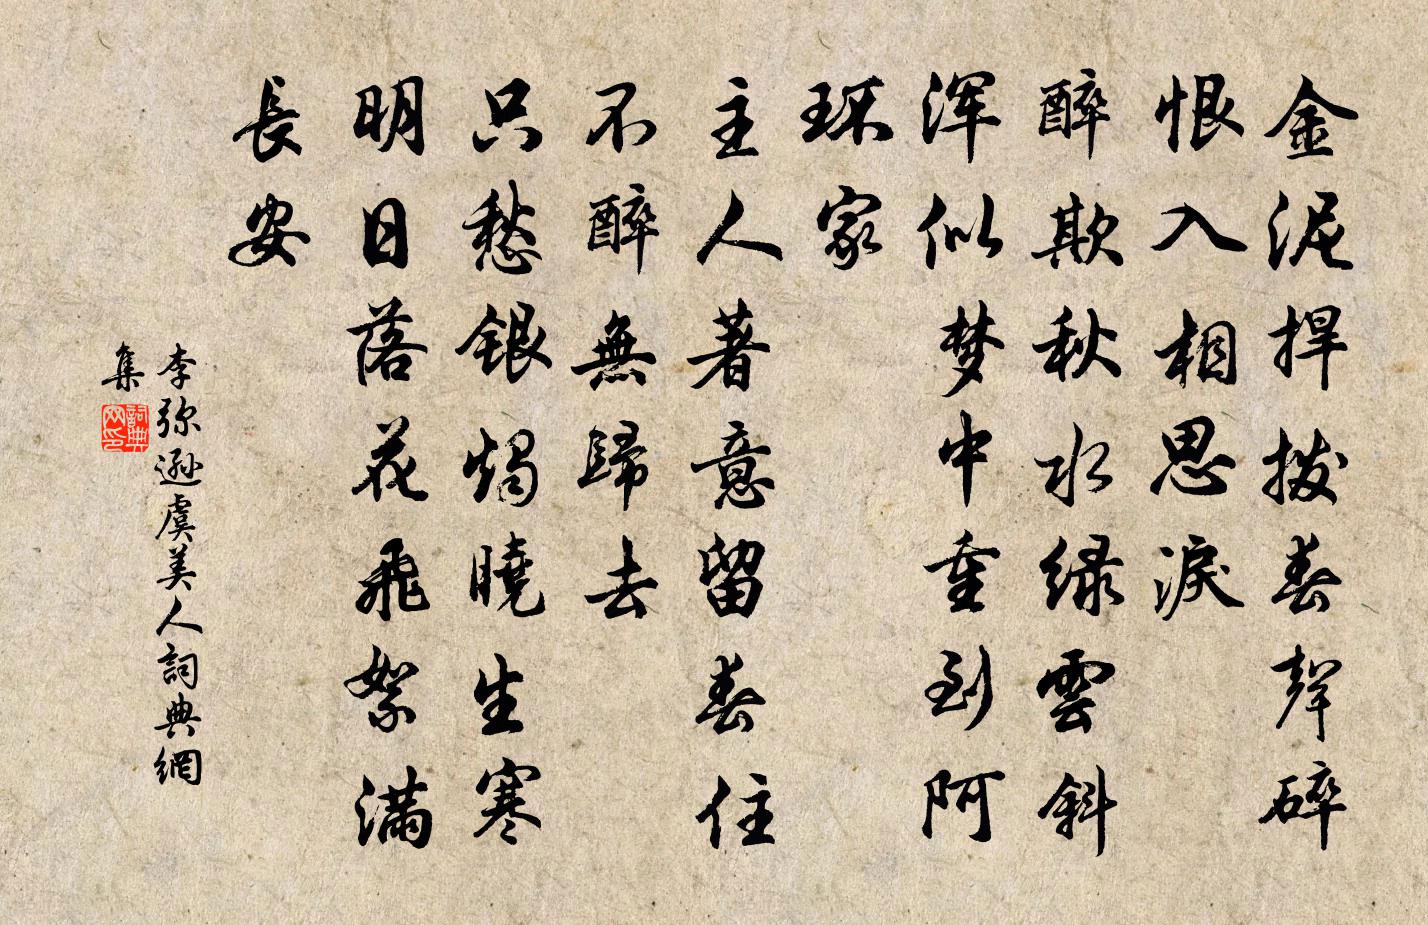 金泥捍拨春聲碎
恨入相思淚
醉欺秋水绿雲斜
浑似梦中重到阿
环家
主人著意留春住
不醉無歸去
只愁銀燭曉生寒
明日落花飛絮满
長安
李弥遜虞美人詞典網
集
詞典网印